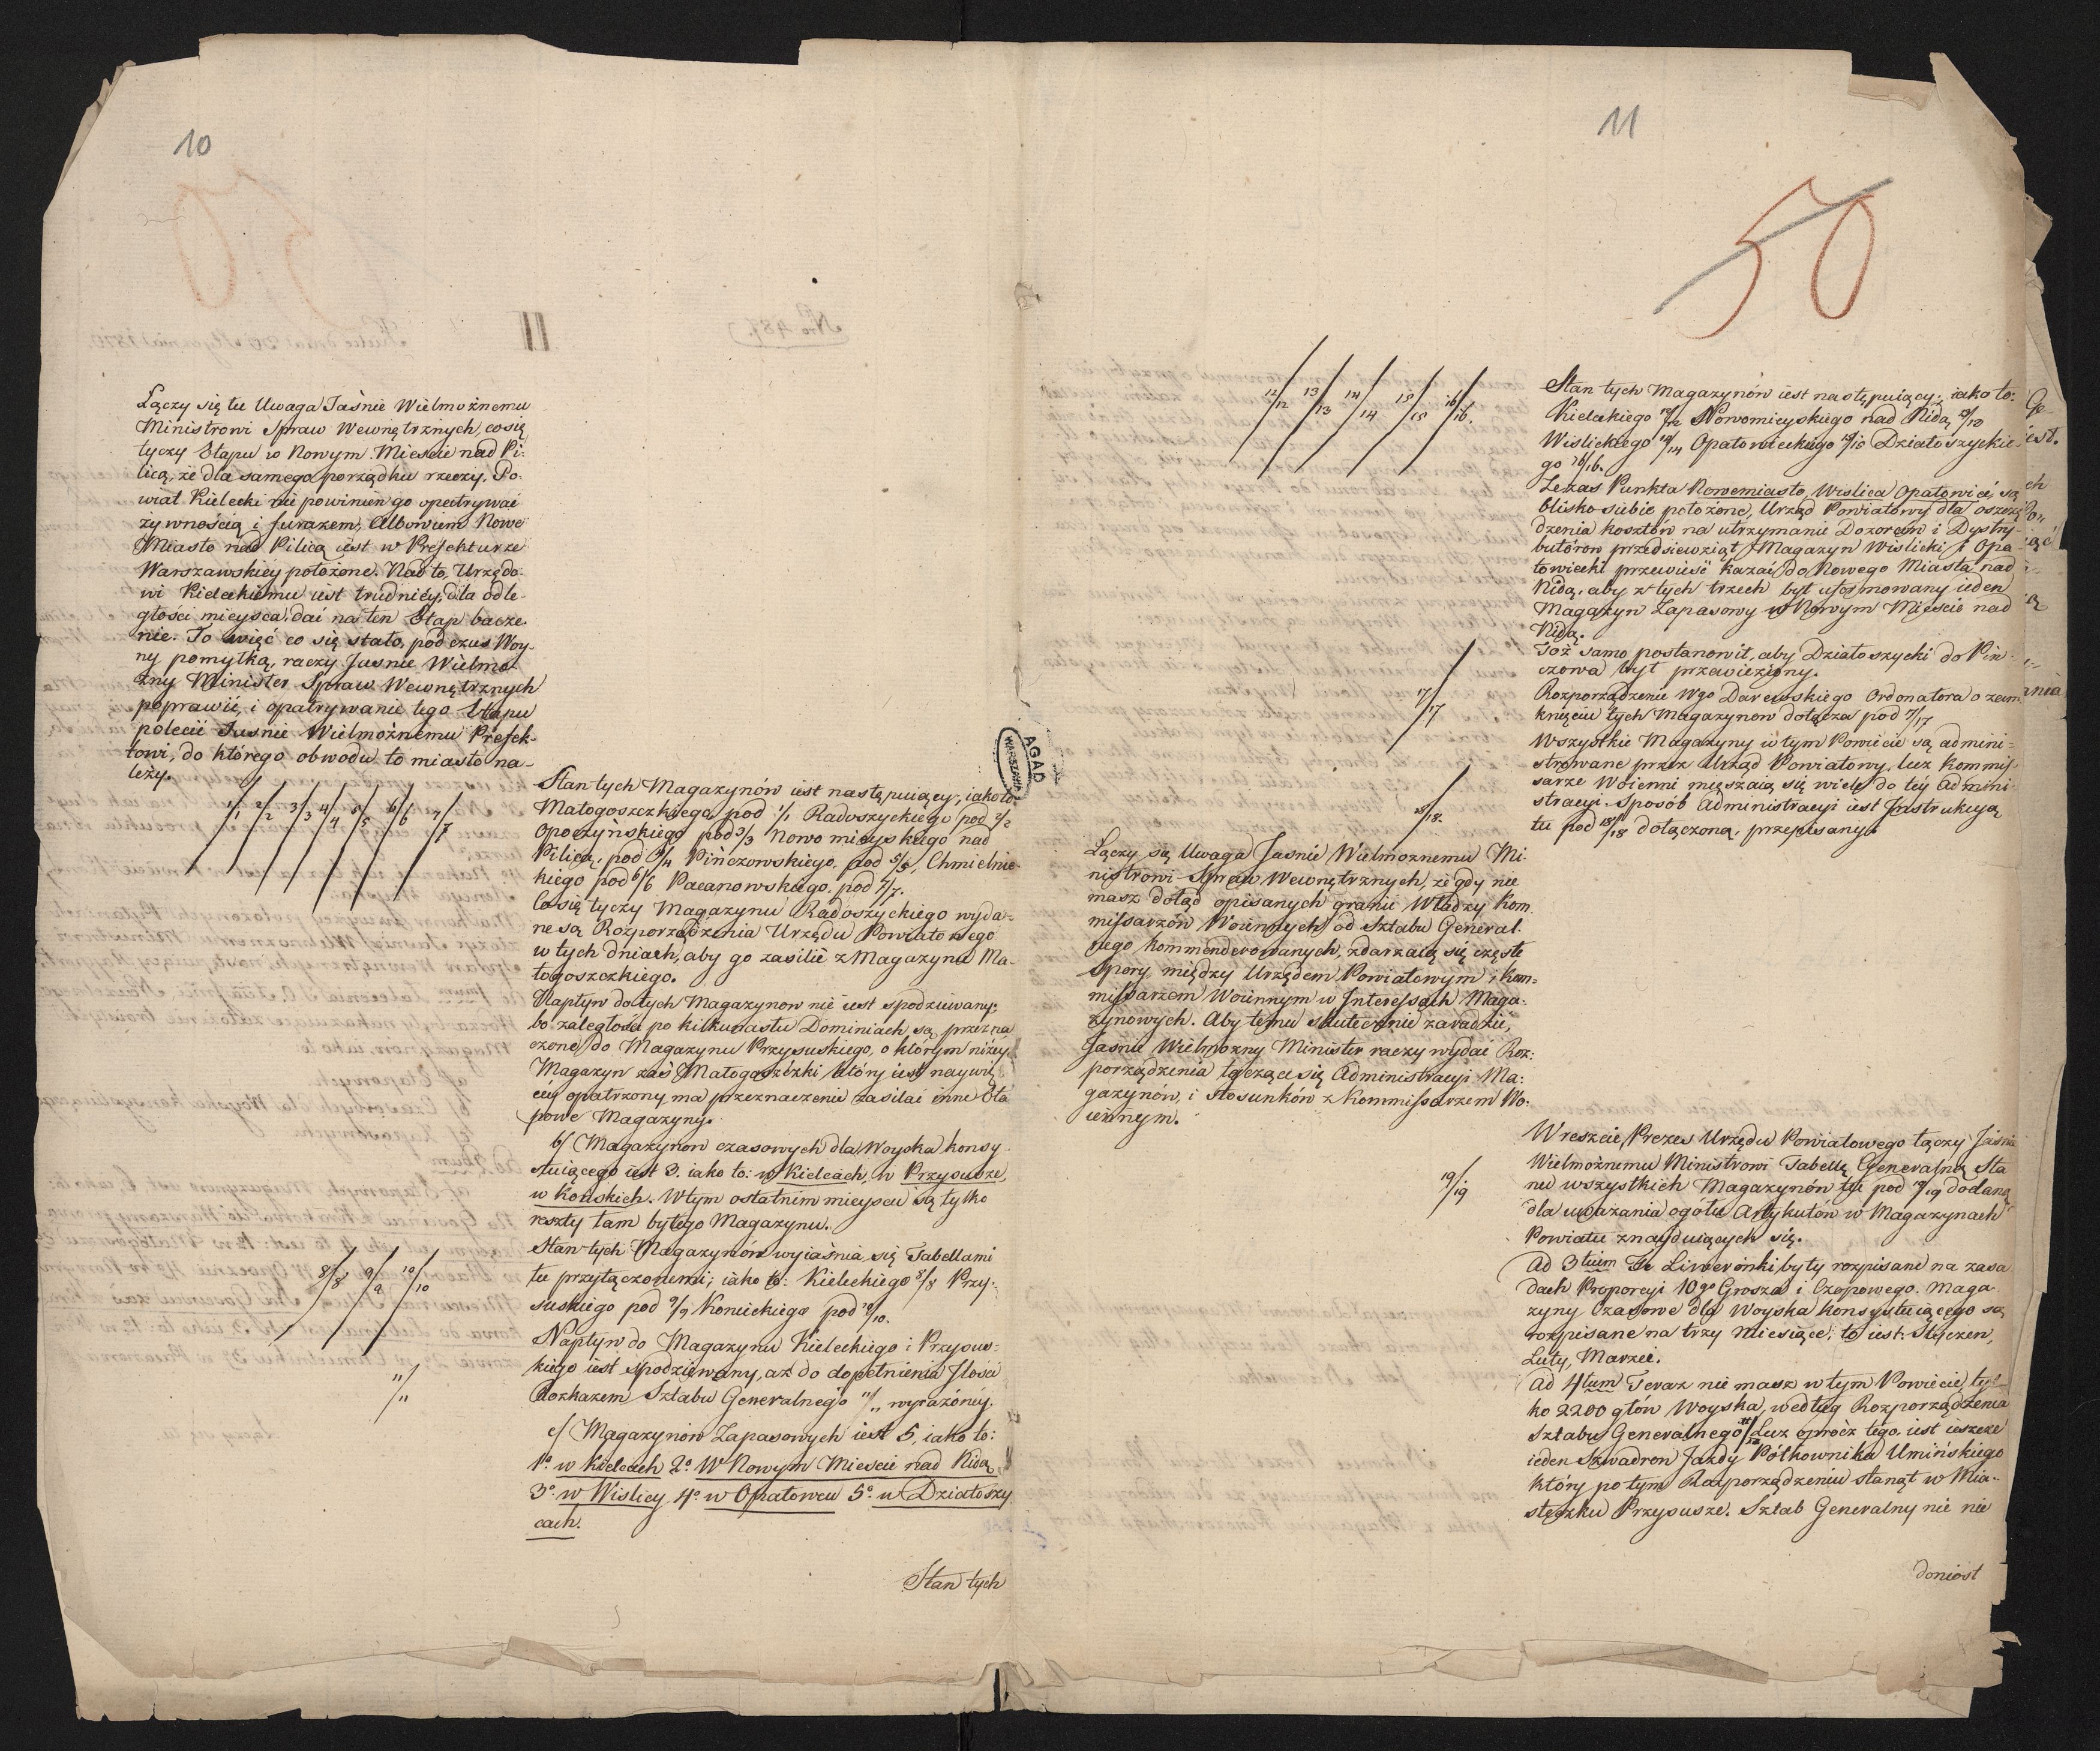 10
Łączy się tu Uwaga Jaśnie Wielmożnemu
Ministrowi Spraw Wewnętrznych, co się
tyczy Etapu w Nowym Mieście nad Pi-
licą, że dla samego porządku rzeczy, Po-
wiat Kielecki nie powinien go opatrywać
żywnością i furażem, Albowiem Nowe
Miasto nad Pilicą iest w Prefekturze
Warszawskiey położone. Nad to, Urzędo-
wi Kieleckiemu iest trudniey, dla odle-
głości mieysca, dać na ten Etap bacze-
nie. To więc co się stało, pod czas Woy-
ny pomyłką, raczy Jaśnie Wielmo-
żny Minister Spraw Wewnętrznych
poprawić, i opatrywanie tego Etapu
polecić Jaśnie Wielmożnemu Prefek-
towi, do którego obwodu to miasto na-
leży.
1/1 2/2 3/3 4/4 5/5 6/6 7/7
Stan tych Magazynów iest następuiący, iako to
Małogoszczkiego pod 1/1 Radoszyckiego pod 2/2
Opoczyńskiego pod 3/3 Nowo mieyskiego nad
Pilicą, pod 4/4 Pińczowskiego, pod 5/5, Chmielnic-
kiego pod 6/6 Pacanowskiego pod 7/7.
Co się tyczy Magazynu Radoszyckiego wyda-
ne są Rozporządzenia Urzędu Powiatowego
w tych dniach, aby go zasilić z Magazynu Ma-
łogoszczkiego.
Napływ do tych Magazynow nie iest spodziewany;
bo zaległości po kilkunastu Dominiach są przezna
czone do Magazynu Przysuskiego, o którym niżey
Magazyn zaś Małogoszczki który iest naywię
cey opatrzony ma przeznaczenie zasilać inne Eta
powe Magazyny.
b/ Magazynow czasowych dla Woyska konsy-
stuiącego iest 3. iako to: w Kielcach, w Przysusze,
w Końskich. W tym ostatnim mieyscu są tylko
reszty tam byłego Magazynu.
Stan tych Magazynów wyiaśnia się Tabellami
tu przyłączonemi; iako to: Kieleckiego 8/8 Przy-
suskiego pod 9/9 Konieckiego pod 10/10.
8/8 9/9 10/10
Napływ do Magazynu Kieleckiego i Przysus-
kiego iest spodziewany, aż do dopełnienia Jlości
Rozkazem Sztabu Generalnego 11/11 wyrażóney.
11/11
c/ Magazynów Zapasowych iest 5, iako to:
1o w Kielcach 2o W Nowym Mieście nad Nidą
3o w Wislicy 4o w Opatowcu 5o w Działoszy
cach.
Stan tych
AGAD
WARSZAWA
11
50
12/12 13/13 14/14 15/15 16/16.
Stan tych Magazynów iest następuiący; iako to:
Kieleckiego 12/12 Nowomieyskiego nad Nidą 13/13
Wislickiego 14/14 Opatowieckiego 15/15 Działoszyckie
go 16/16.
Ze zas Punkta Nowemiasto, Wislica Opatowiec są
blisko siebie położone, Urząd Powiatowy dla oszczę
dzenia kosztów na utrzymanie Dozorców i Dystry-
butórow przedsiewziął Magazyn Wislicki i Opa-
towiecki przewieść kazać do Nowego Miasta nad
Nidą, aby z tych trzech był uformowany ieden
Magazyn Zapasowy w Nowym Mieście nad
Nidą.
Toż samo postanowił, aby Działoszycki do Piń-
czowa był przewieziony.
17/17
Rozporządzenie Wgo Ordonatora o zam
knięciu tych Magazynow dołącza pod 17/17
Wszystkie Magazyny w tym Powiecie są admini-
strowane przez Urząd Powiatowy, lecz Kommis-
sarze Woienni mięszaią się wiele do tey Admini-
stracyi. Sposób Administracyi iest Jnstrukcyą
tu pod 18/18 dołączoną, przepisany.
18/18.
Łączy się Uwaga Jaśnie Wielmożnemu Mi-
nistrowi Spraw Wewnętrznych, że gdy nie
masz dotąd opisanych granic Władzy Kom
missarzów Woiennych od Sztabu General-
nego kommenderowanych, zdarzaią się częste
Spory między Urzędem Powiatowym i Kom-
missarzem Woiennym w Jnteressach Maga-
zynowych. Aby temu skutecznie zaradzić,
Jaśnie Wielmożny Minister raczy wydać Roz-
porządzenia tyczące się Administracyi Ma-
gazynów, i stosunków z Kommissarzem Wo-
iennym.
19/19
Wreszcie Prezes Urzędu Powiatowego łączy Jaśnie
Wielmożnemu Ministrowi Tabellę Generalną Sta
nu wszystkich Magazynów tu pod 19/19 dodaną
dla uważania ogółu Artykułów w Magazynach
Powiatu znayduiących się.
Ad 3tium Te Liwerónki były rozpisane na zasa
dach Proporcyi 10go Grosza i Czopowego. Maga-
zyny Czasowe dla Woyska konsystuiącego są
rozpisane na trzy miesiące; to iest: Styczeń,
Luty, Marzec.
Ad 4tum Teraz nie masz w tym Powiecie, tyl-
ko 2200 głów Woyska, według Rozporządzenia
Sztabu Generalnego Lecz oprócz tego, iest ieszcze
ieden Szwadron Jazdy Półkownika Umińskiego
który po tym Rozporządzeniu stanął w Mia-
steczku Przysusze. Sztab Generalny nic nie
doniosł